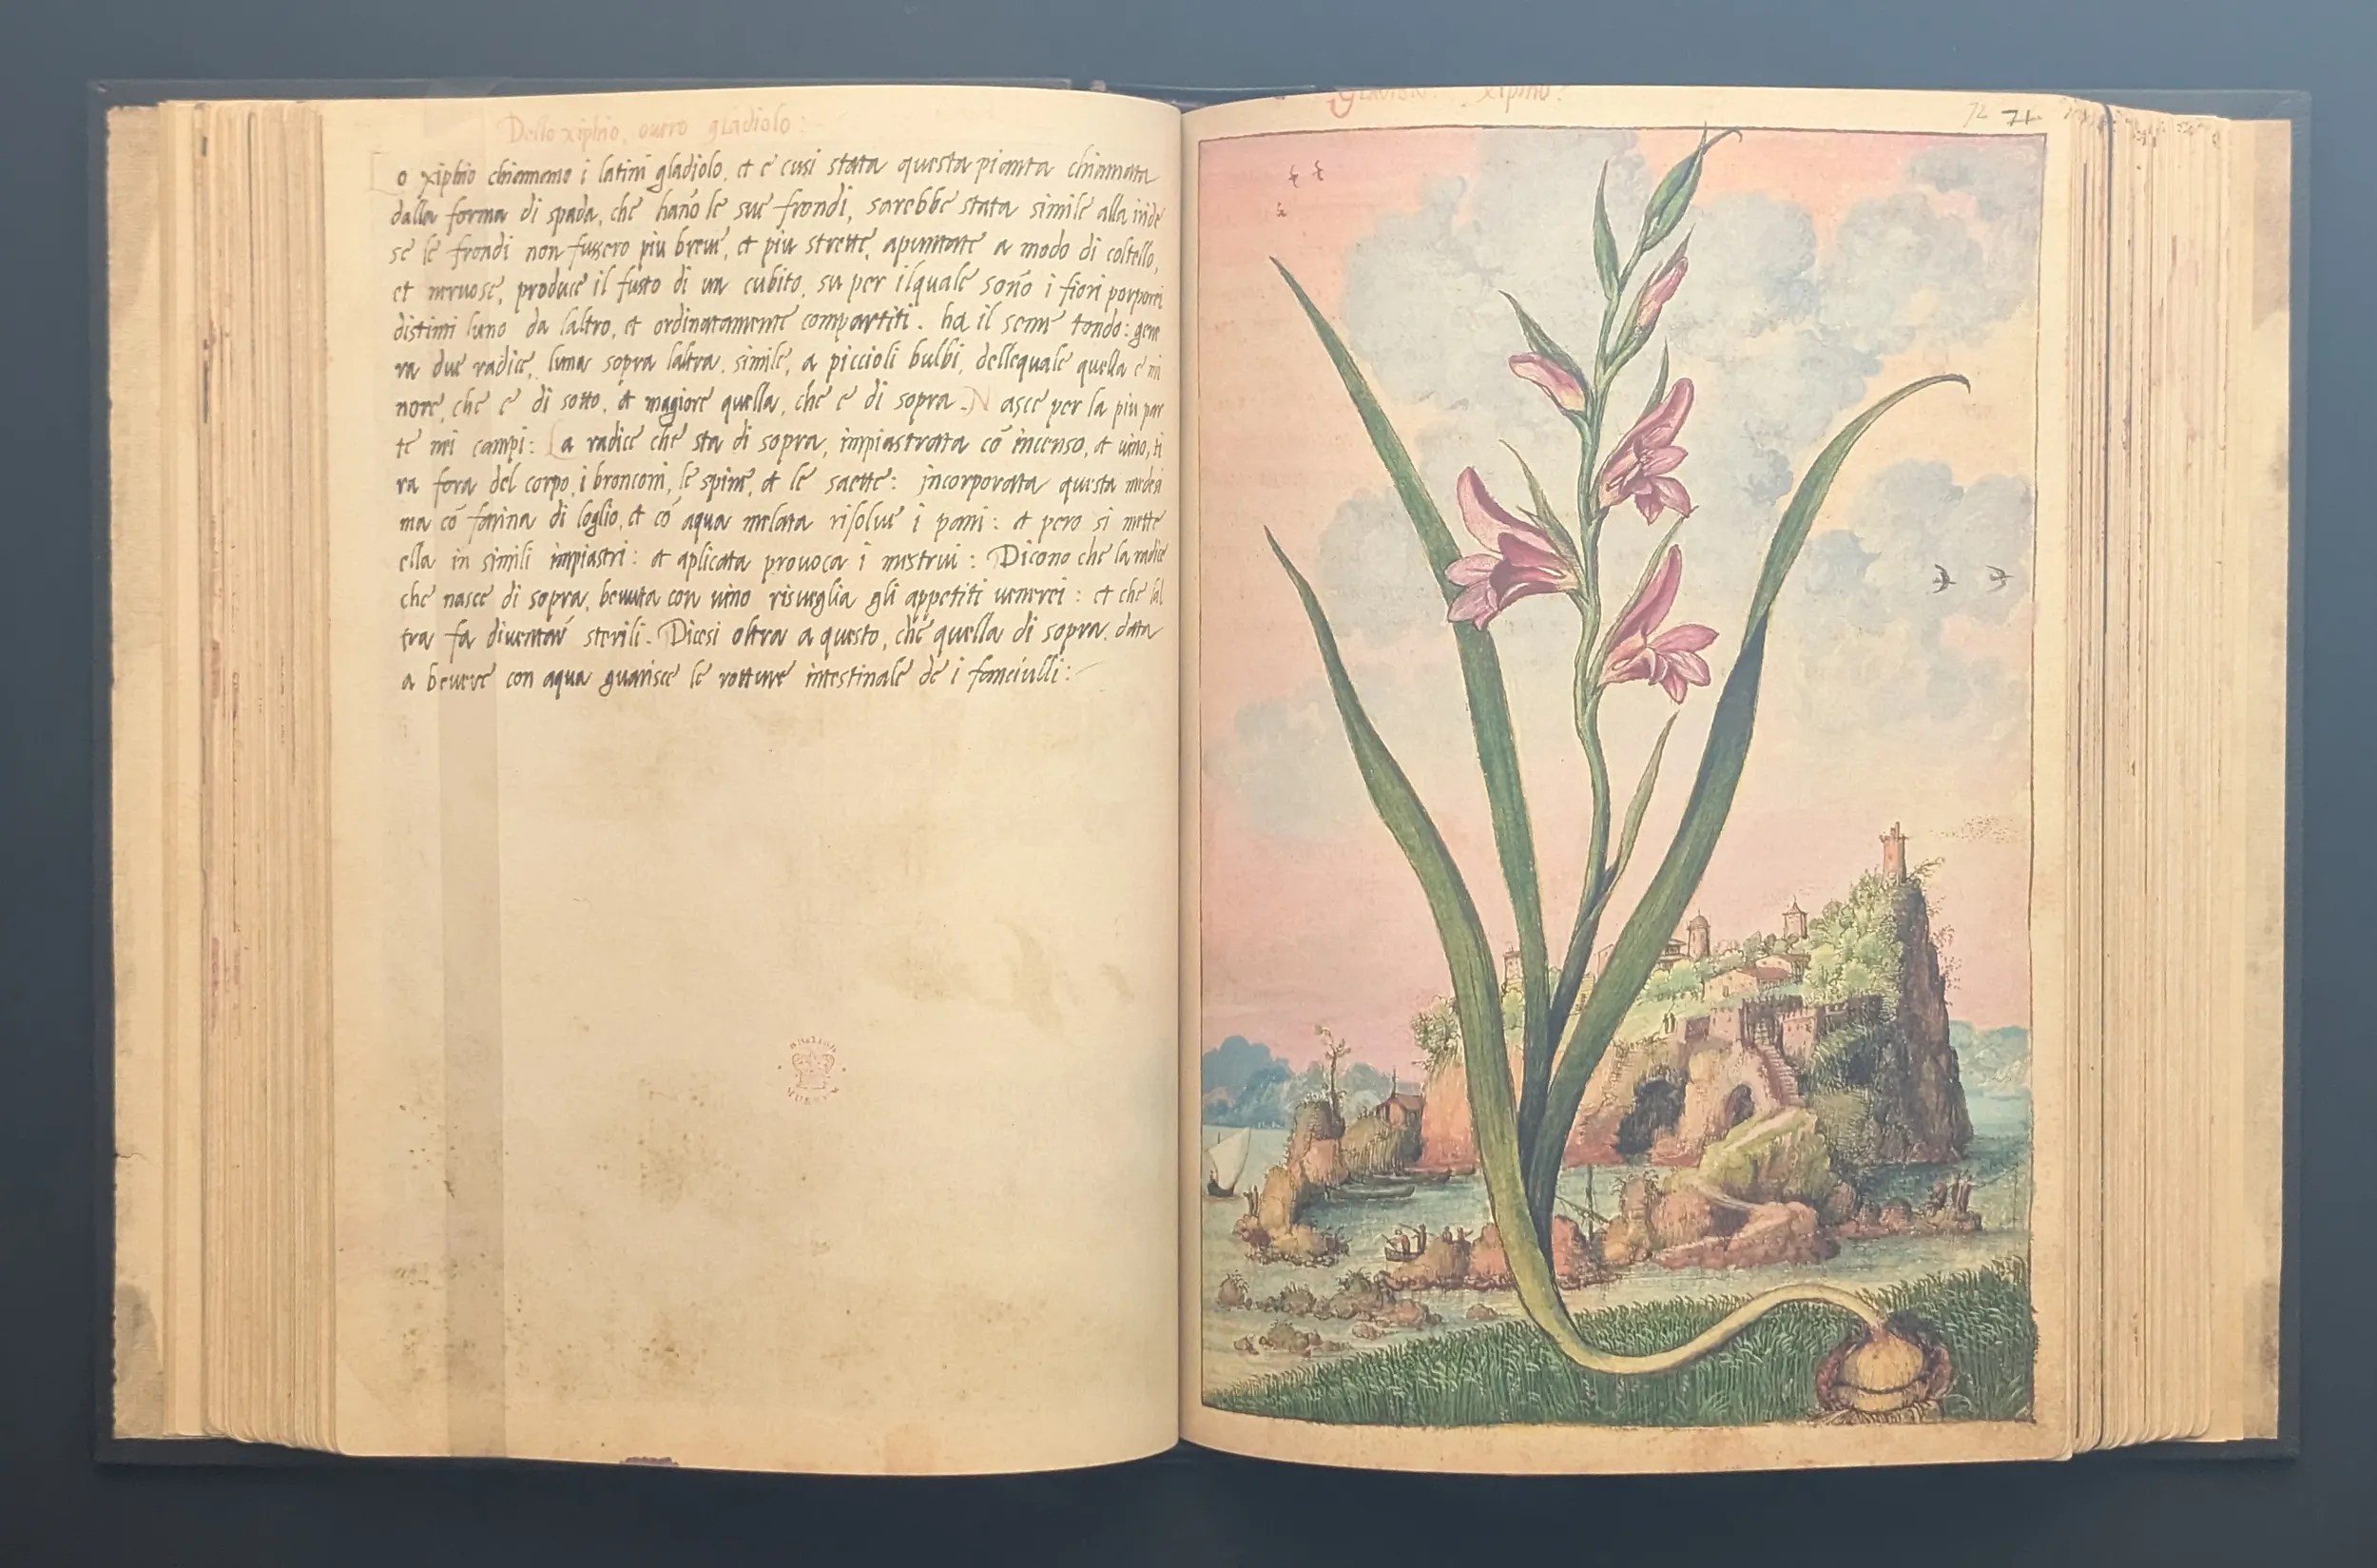 Dello xiphio, ouero gladiolo:
Lo xiphio chiamano i latini gladiolo, et è cusi stata questa pianta chiamata
dalla forma di spada, che hanō le sue frondi, sarebbe stata simile alla iride
se le frondi non fussero piu breui, et piu strette, apuntate a modo di coltello,
et neruose, produce il fusto di un cubito, su per ilquale sonō i fiori porporei
distinti luno da laltro, et ordinatamente compartiti. ha il seme tondo: gene
ra due radice, luna sopra laltra, simile, a piccioli bulbi, dellequale quella è mi
nore, che è di sotto, et magiore quella, che è di sopra. Nasce per la piu par
te nei campi: La radice che sta di sopra, impiastrata cō incenso, et uino, ti
ra fora del corpo, i bronconi, le spine, et le saette: incorporata questa medesi
ma cō farina di loglio, et cō aqua melata risolue i pani: et pero si mette
ella in simili impiastri: et aplicata prouoca i mestrui: Dicono che la radice
che nasce di sopra, beuuta con uino risueglia gli appetiti uenerei: et che lal
tra fa diuentar sterili. Dicesi oltra a questo, che quella di sopra. data
a beuere con aqua guarisce le rotture intestinale de i fanciulli:
Gladiolo. Xiphio:
72 71